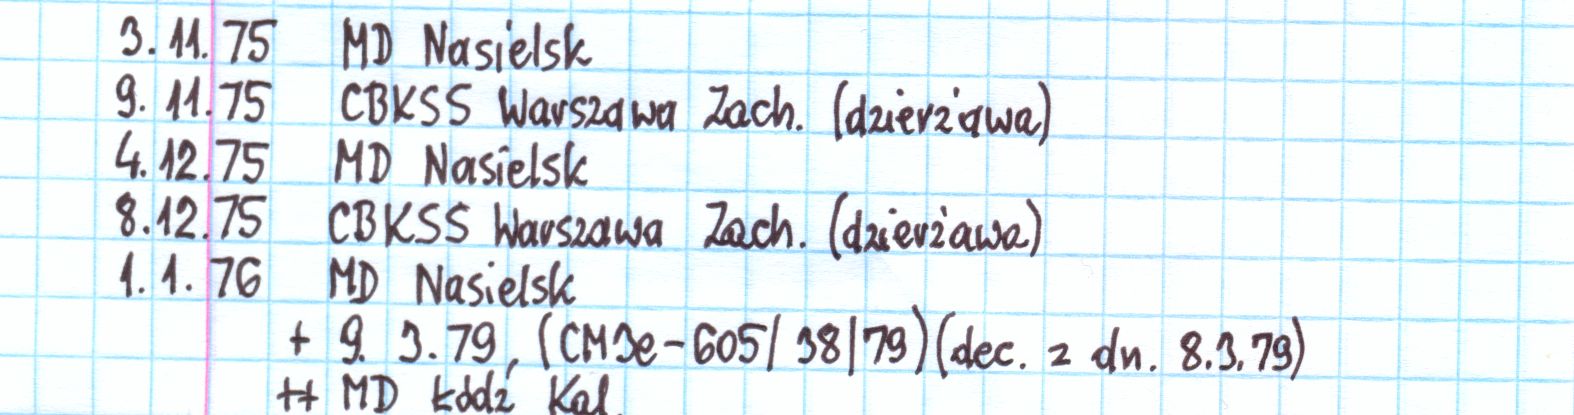 3.11.75 MD Nasielsk
9.11.75 CBKSS Warszawa Zach. (dzierżawa)
4.12.75 MD Nasielsk
8.12.75 CBKSS Warszawa Zach. (dzierżawa)
1.1.76 MD Nasielsk
+ 9.3.79, (CMDe-605/38/79)(dec. z dn. 8.3.79)
++ MD Łódź Kal.